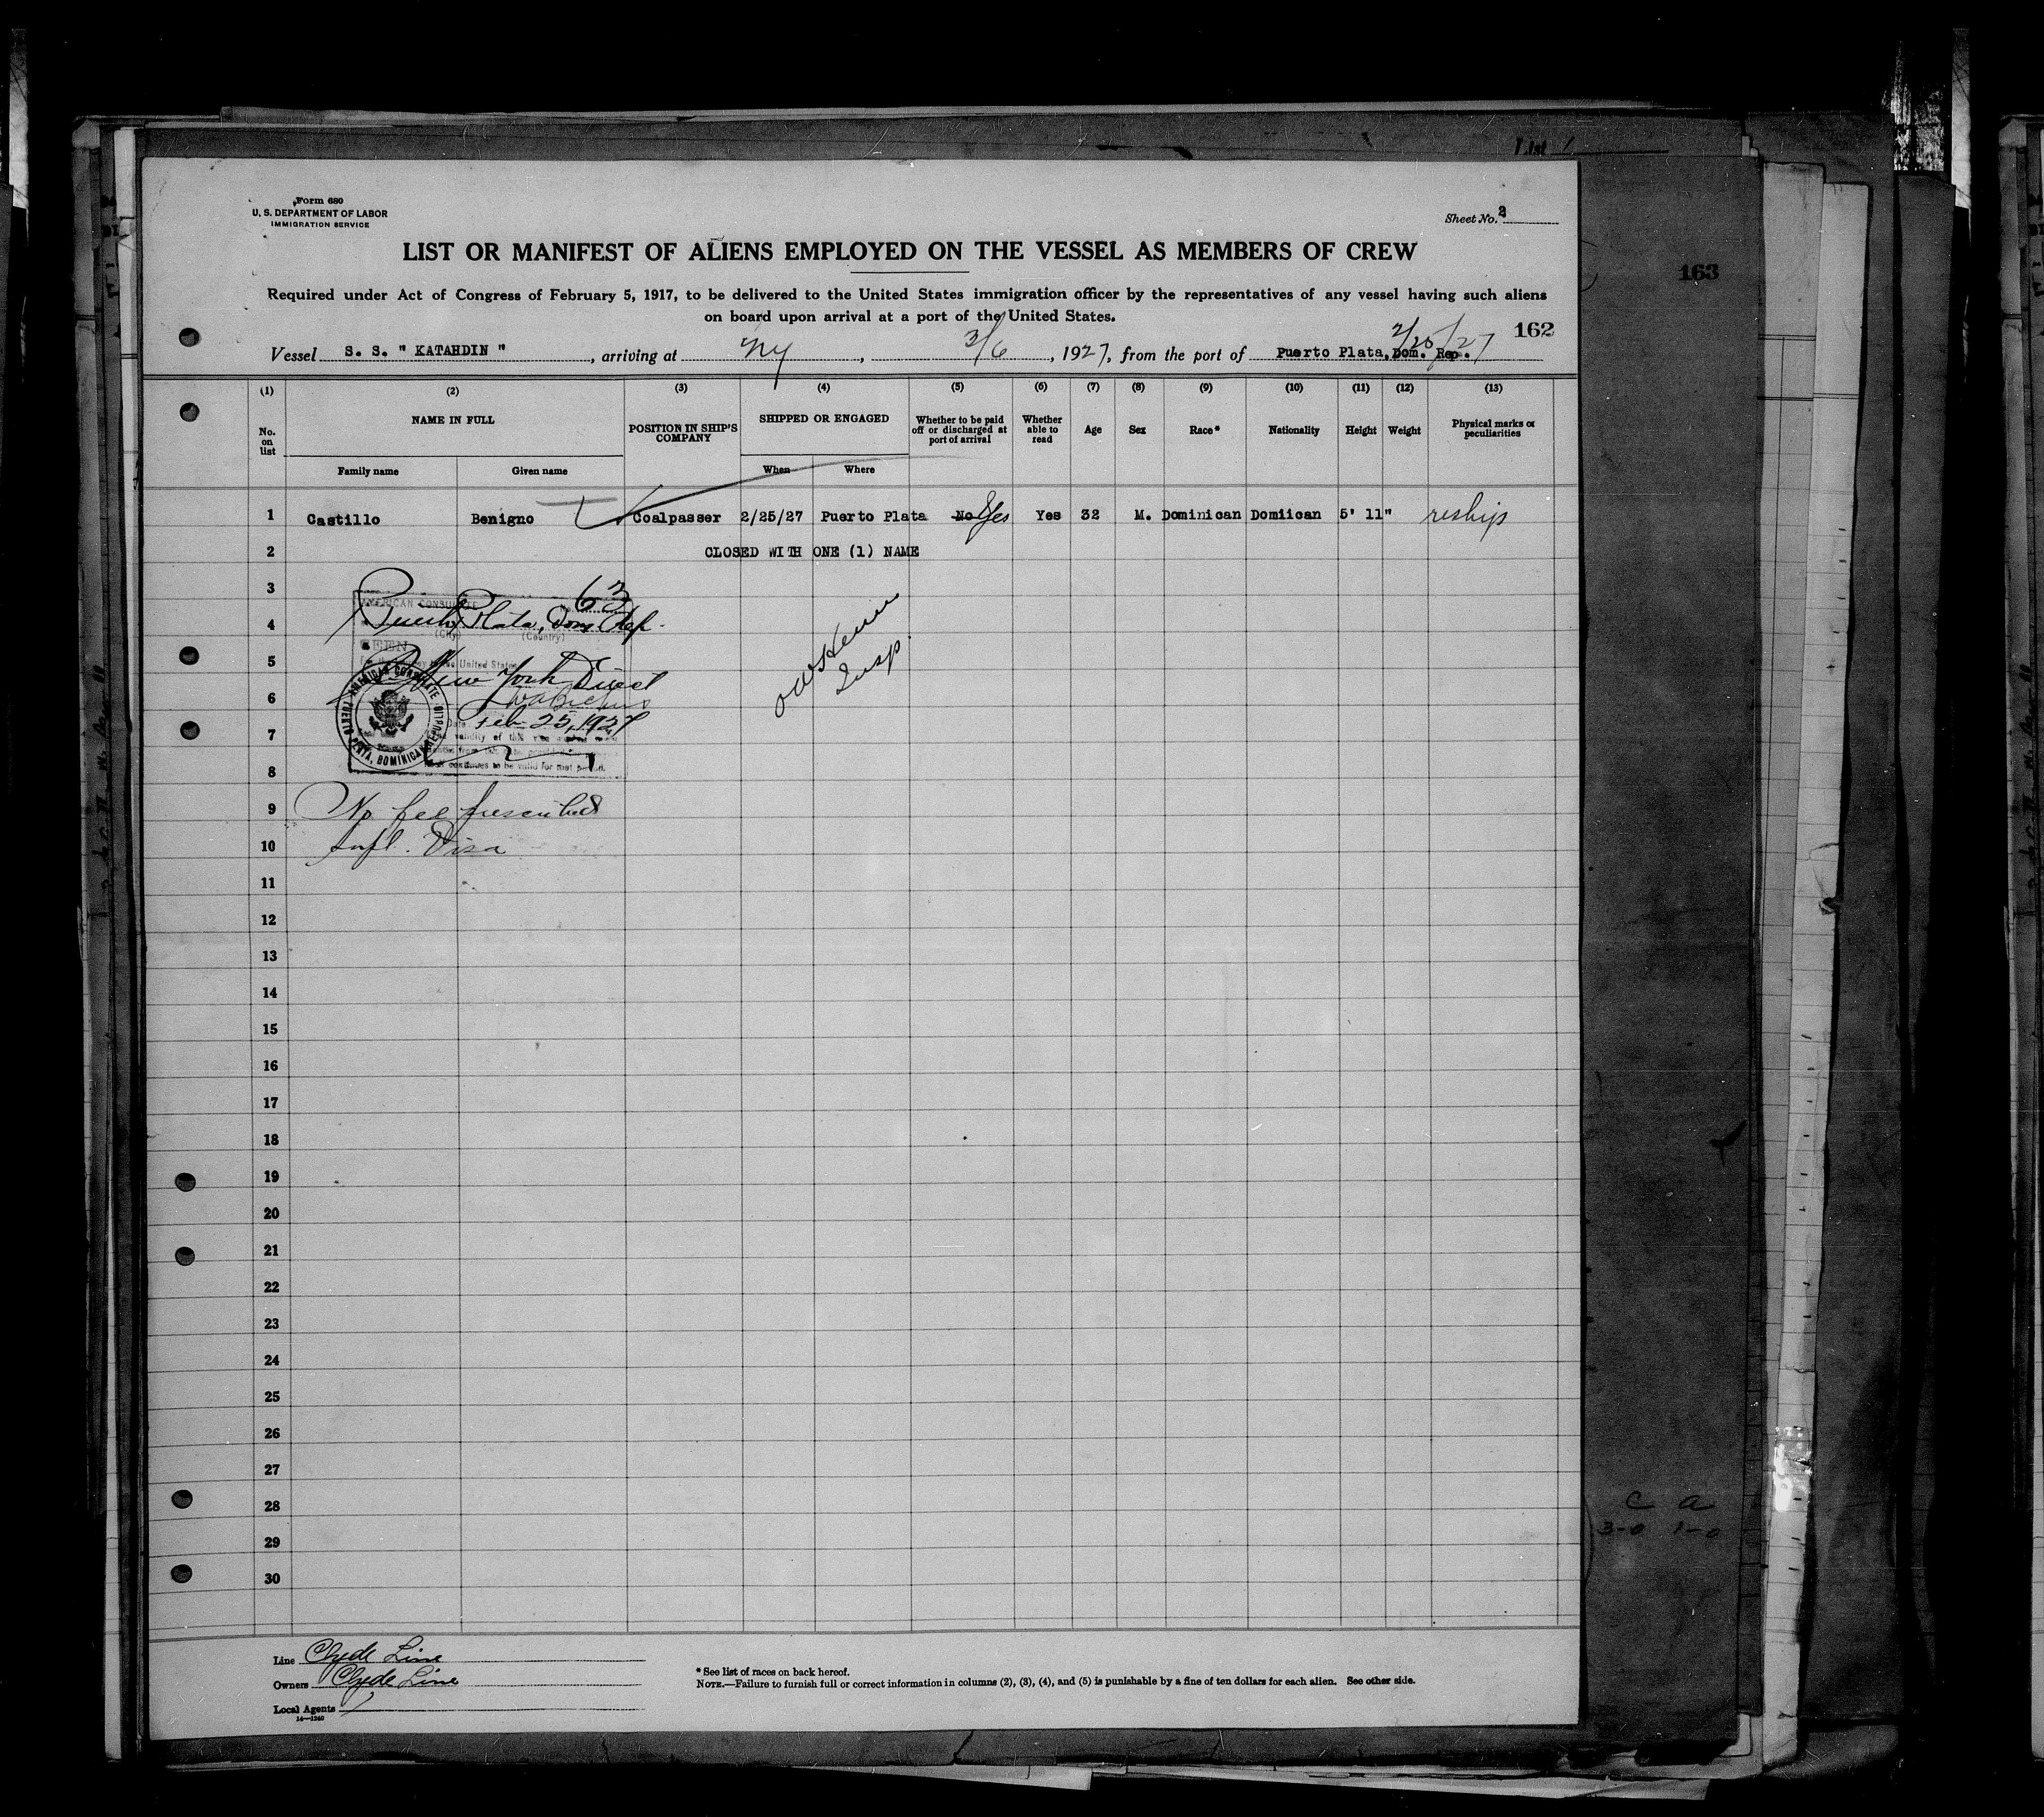 List 1
163
Form 680
U. S. DEPARTMENT OF LABOR
IMMIGRATION SERVICE
Sheet No. 2
LIST OR MANIFEST OF ALIENS EMPLOYED ON THE VESSEL AS MEMBERS OF CREW
Required under Act of Congress of February 5, 1917, to be delivered to the United States immigration officer by the representatives of any vessel having such aliens
on board upon arrival at a port of the United States.
162
Vessel S. S. " KATAHDIN ", arriving at NY, 3/6, 1927, from the port of Puerto Plata, Dom. Rep. 2/25/27
(1) (2) (3) (4) (5) (6) (7) (8) (9) (10) (11) (12) (13)
No. on list
NAME IN FULL
Family name Given name
POSITION IN SHIP'S COMPANY
SHIPPED OR ENGAGED
When Where
Whether to be paid off or discharged at port of arrival
Whether able to read
Age Sex Race* Nationality Height Weight
Physical marks or peculiarities
1 Castillo Benigno Coalpasser 2/25/27 Puerto Plata No Yes Yes 32 M. Dominican Domiican 5' 11" reship
2 CLOSED WITH ONE (1) NAME
3
4
5
6
7
8
9
10
11
12
13
14
15
16
17
18
19
20
21
22
23
24
25
26
27
28
29
30
AMERICAN CONSULATE
No. 63
Puerto Plata, Dom. Rep.
(City) (Country)
SEEN
United States
New York Direct
Date Feb 25, 1927
validity of this
continues to be valid for that period.
AMERICAN CONSULATE PUERTO PLATA, DOMINICAN REPUBLIC
No fee prescribed
Supl. Visa
Insp.
C a
3-0 1-0
Line Clyde Line
Owners Clyde Line
Local Agents
14—1240
* See list of races on back hereof.
NOTE.—Failure to furnish full or correct information in columns (2), (3), (4), and (5) is punishable by a fine of ten dollars for each alien. See other side.